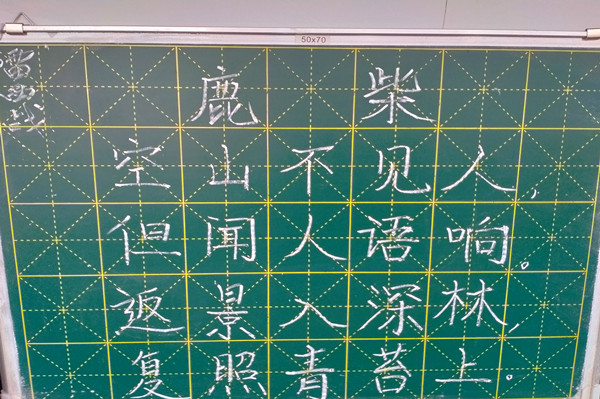 50x70
鹿柴
空山不见人,
但闻人语响。
返景入深林,
复照青苔上。